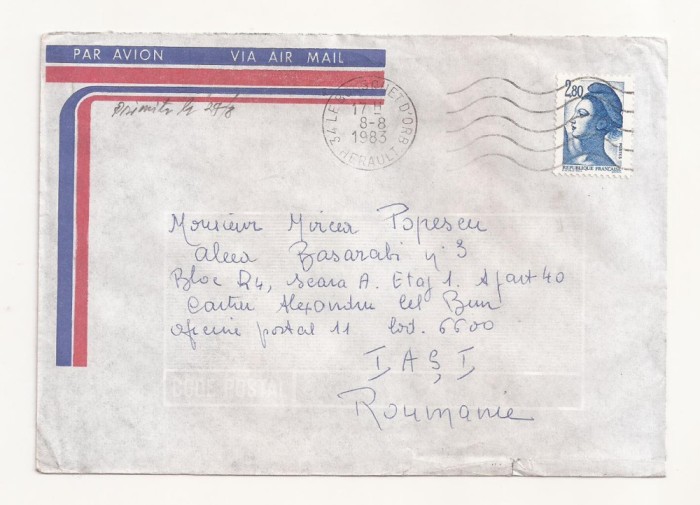 PAR AVION VIA AIR MAIL
Primită la 27/8
34 LE BOUSQUET D'ORB
17 H
8-8
1983
HERAULT
2,80
POSTES
REPUBLIQUE FRANÇAISE
Monsieur Mircea Popescu
alea Basarabi n° 3
Bloc D4, scara A. Etaj 1. Apart 40
Cartier Alexandru cel Bun
oficiul postal 11 Cod. 6600
IAȘI
Roumanie
CODE POSTAL